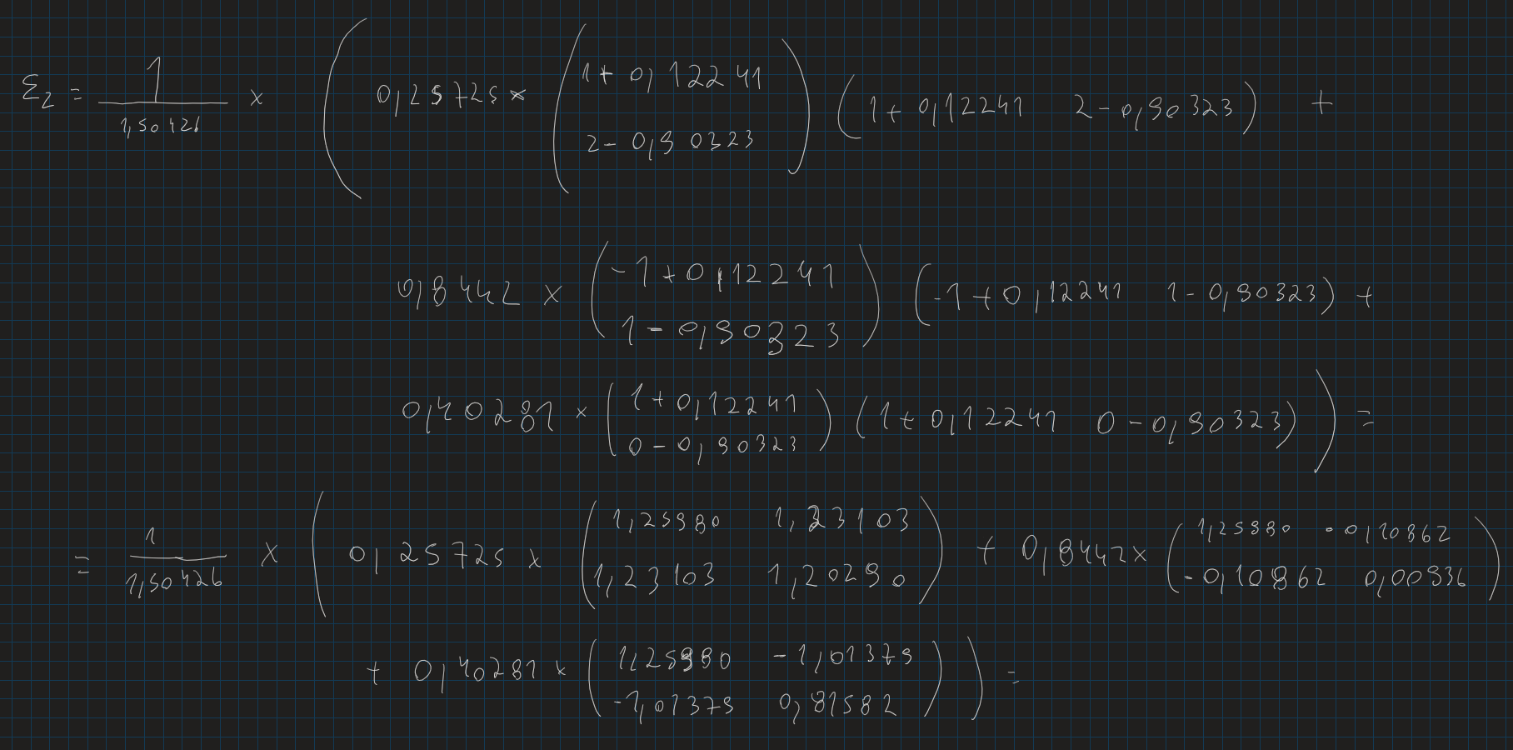 Σ₂ = 1/1,50426 × ( 0,25725 × ( 1+0,12241 ; 2-0,90323 ) ( 1+0,12241   2-0,90323 ) +
0,8442 × ( -1+0,12241 ; 1-0,90323 ) ( -1+0,12241   1-0,90323 ) +
0,40281 × ( 1+0,12241 ; 0-0,90323 ) ( 1+0,12241   0-0,90323 ) ) =
= 1/1,50426 × ( 0,25725 × ( 1,25980   1,23103 ; 1,23103   1,20290 ) + 0,8442 × ( 1,25980   -0,10862 ; -0,10862   0,00936 )
+ 0,40281 × ( 1,25980   -1,01379 ; -1,01379   0,81582 ) ) =